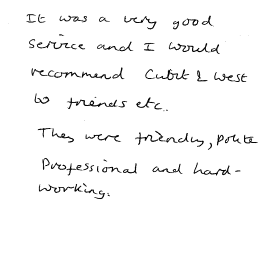 It was a very good
service and I would
recommend Cubit & West
to friends etc.
They were friendly, polite
Professional and hard-
working.